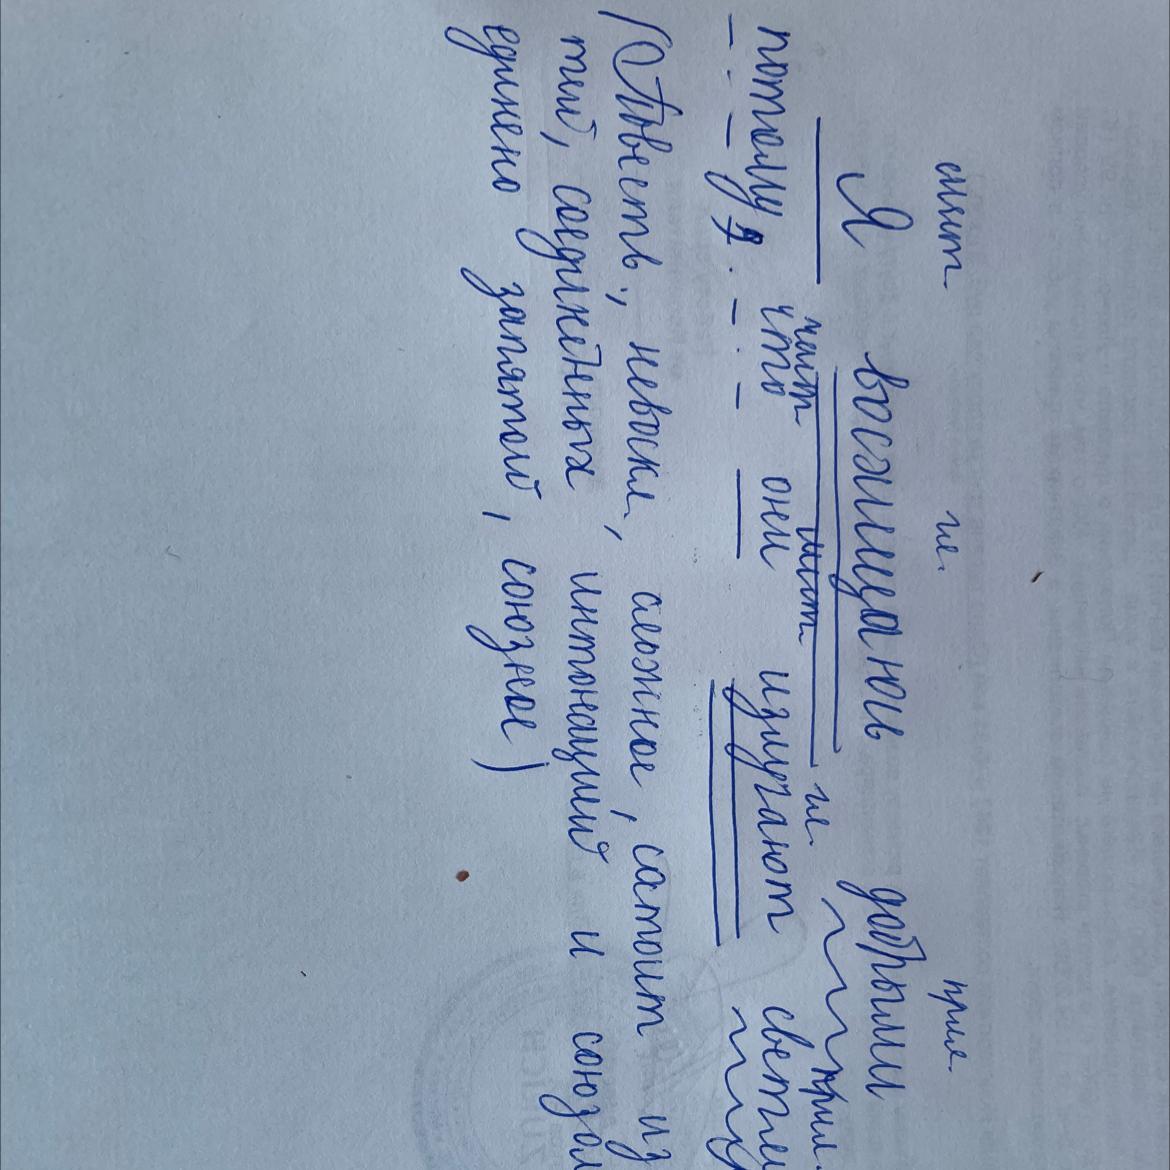 мест. гл. прил.
Я восхищаюсь добрыми
част. мест. гл. прил.
потому что они излучают
(Повеств., невоскл., сложное, состоит из
тей, соединённых интонацией и союзом
единено запятой, союзное)